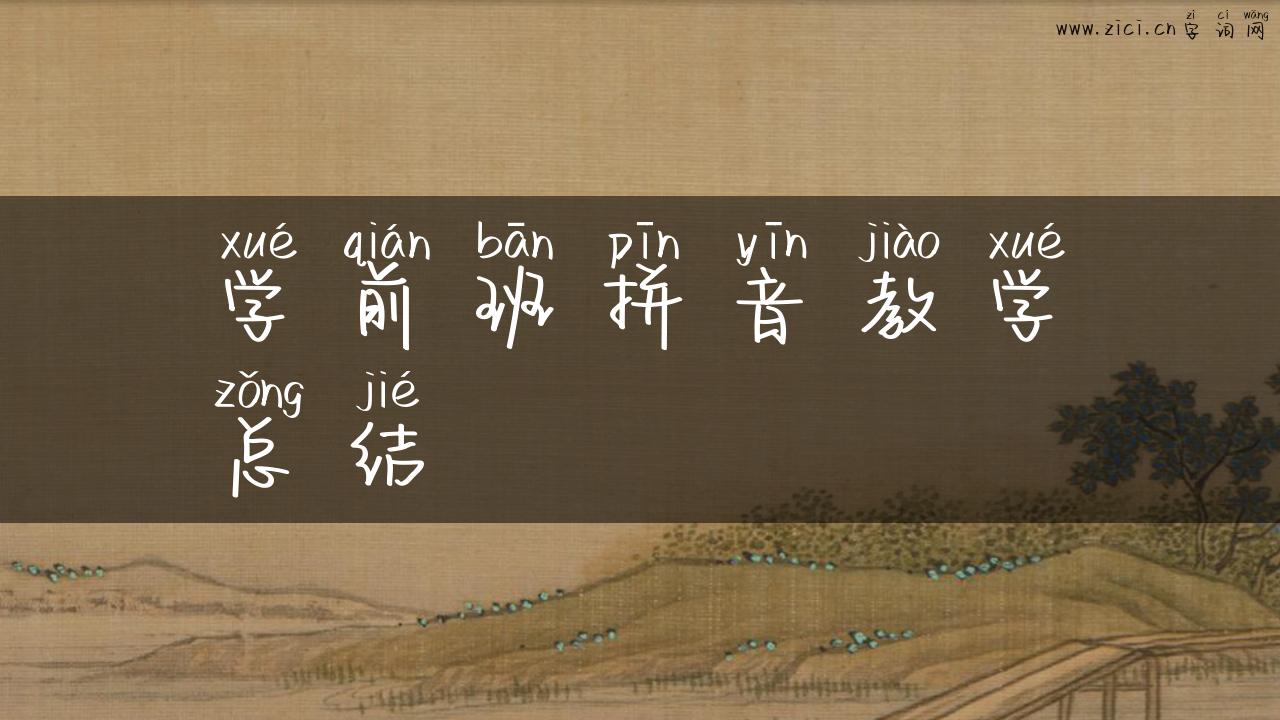 zì cí wǎng
www.zici.cn 字词网
xué qián bān pīn yīn jiào xué
学前班拼音教学
zǒng jié
总结